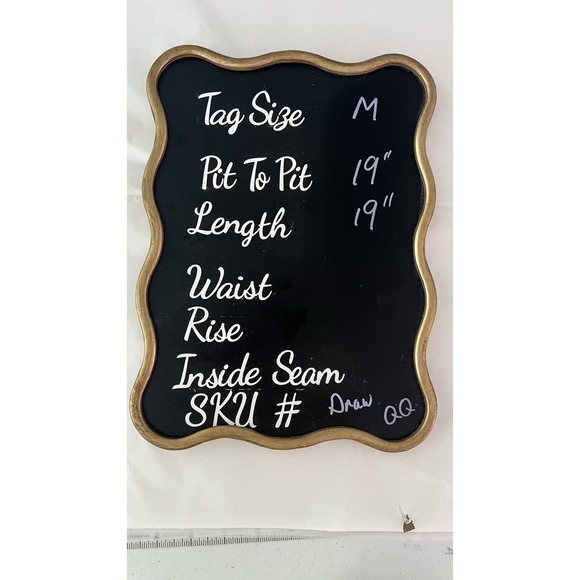 Tag Size M
Pit To Pit 19"
Length 19"
Waist
Rise
Inside Seam
SKU # Draw QQ